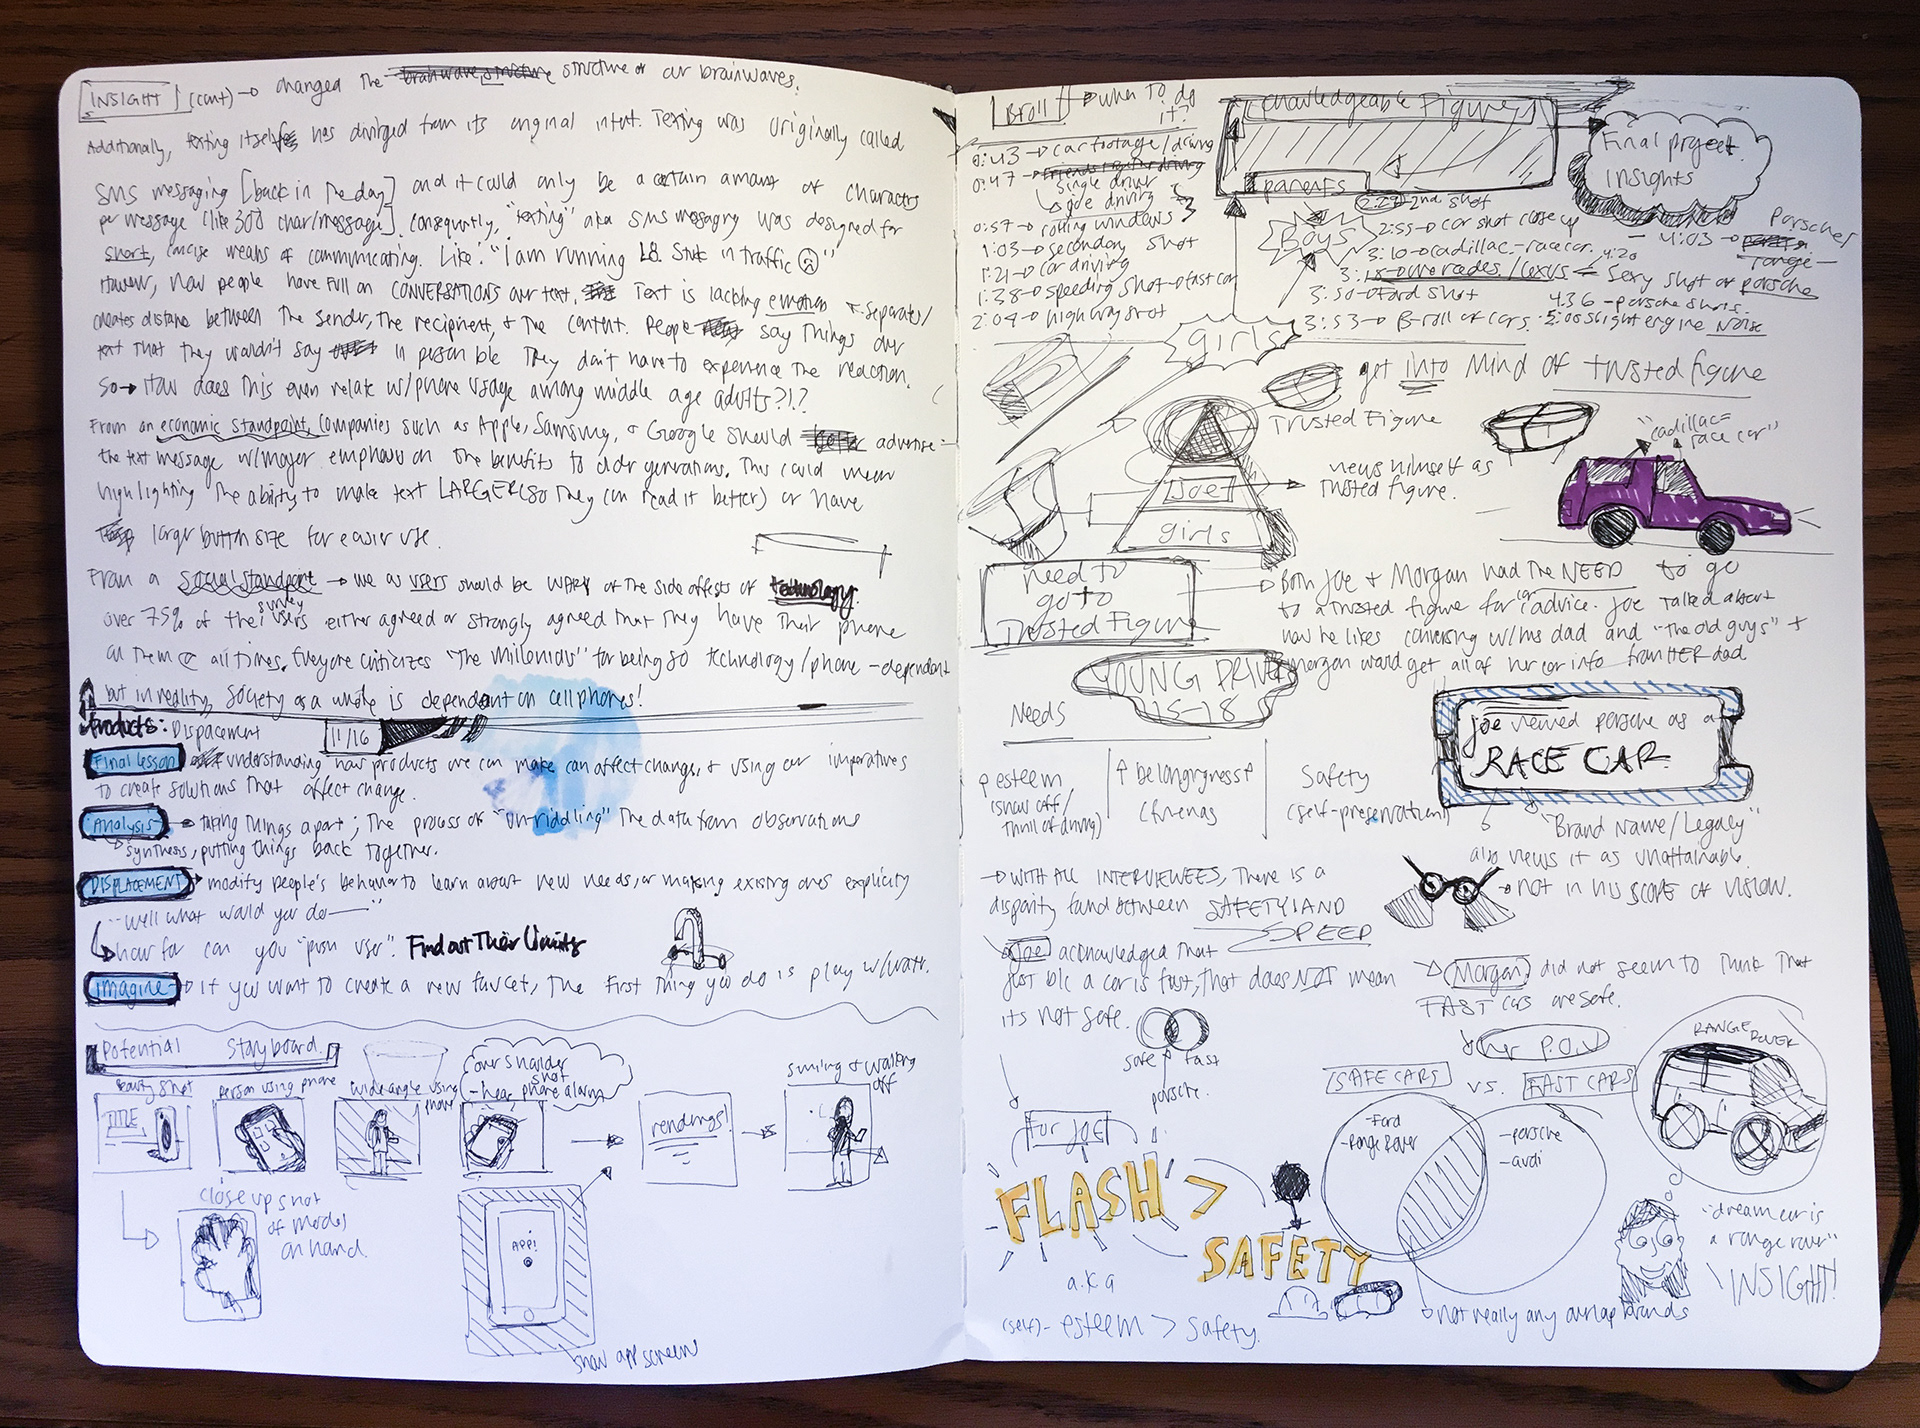 INSIGHT (cont) → changed the brainwave structure structure of our brainwaves.
Additionally, texting itself has divirged from its original intent. Texting was originally called
SMS messaging [back in the day] and it could only be a certain amount of characters
per message (like 300 char/message). Consequently, "texting" aka SMS messaging was designed for
short, concise means of communicating. Like: "I am running L8. Stuck in traffic ☹"
However, now people have full on CONVERSATIONS over text. Text is lacking emotion & separates/
creates distance between the sender, the recipient, & the content. People say things over
text that they wouldn't say in person b/c they don't have to experience the reaction.
So → How does this even relate w/phone usage among middle age adults?!?
From an economic standpoint, companies such as Apple, Samsung, & Google should better advertise
the text message w/major emphasis on the benefits to older generations. This could mean
highlighting the ability to make text LARGER (so they can read it better) or have
larger button size for easier use.
From a social standpoint → we as users should be wary of the side affects of technology.
over 75% of the survey users either agreed or strongly agreed that they have their phone
on them @ all times. Everyone criticizes "The Millenials" for being so technology/phone-dependent
but in reality, society as a whole is dependant on cell phones!
Products: Displacement
11/16
Final lesson understanding how products we can make can affect change, & using our imperatives
to create solutions that affect change.
Analysis → taking things apart; the process of "un-riddling" the data from observations
synthesis, putting things back together.
DISPLACEMENT → modify people's behavior to learn about new needs, or making existing ones explicity
"well what would you do—"
how far can you "push user". Find out Their Limits
imagine → if you want to create a new faucet, the first thing you do is play w/watr.
Potential Storyboard
Beauty shot
person using phone
wide angle using phone
over shoulder shot
- hear phone alarm
smiling & walking off
TITLE
renderings!
close up shot
of modes
on hand
APP!
show app screens
Broll → when to do it?
0:43 → car footage/driving
0:47 → friends together driving
single driver
joe driving
0:57 → rolling windows
1:03 → secondary shot
1:21 → car driving
1:38 → speeding shot → fast car
2:04 → highway shot
Knowledgeable Figure
parents
Final project
Insights
Boys
2:29 2nd shot
2:55 → car shot close up
3:10 → cadillac - racecar
4:20
3:18 → mercades/lexus
3:50 → Ford shot
3:53 → B-roll of cars
4:03 → porsche/
range
Sexy shot of porsche
4:36 - porsche shots
5:00 slight engine NOISE
girls
get into Mind of trusted figure
Trusted Figure
Joe
girls
views himself as
trusted figure.
"cadillac =
race car"
need to
go to
Trusted Figure
Both Joe & Morgan had the NEED to go
to a trusted figure for car advice. Joe talked about
how he likes conversing w/his dad and "the old guys" &
morgan would get all of her car info from HER dad
YOUNG DRIVERS
15-18
Needs
↑ esteem
(show off/
thrill of driving)
↑ belongingness ↑
(friends
Safety
(self-preservation)
Joe viewed porsche as a
RACE CAR
"Brand Name/Legacy"
also views it as unattainable
→ not in his scope of vision.
→ WITH ALL INTERVIEWEES, there is a
disparity found between SAFETY AND
SPEED
Joe acknowledged that
just b/c a car is fast, that does NOT mean
its not safe.
safe
fast
porsche.
Morgan did not seem to think that
FAST cars are safe.
her P.O.V
SAFE CARS vs. FAST CARS
- Ford
- Range Rover
- porsche
- audi
not really any overlap brands
RANGE ROVER
"dream car is
a range rover"
INSIGHT!
For JOE
FLASH >
SAFETY
a.k.a
(self)- esteem > safety.